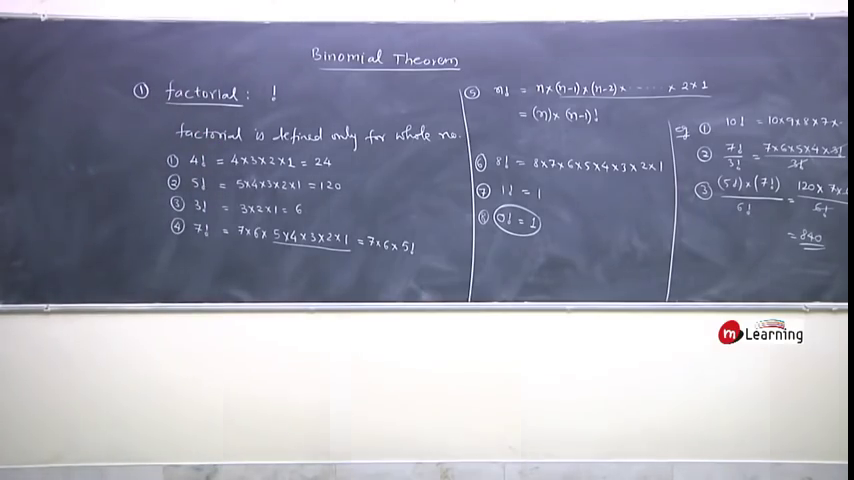 Binomial Theorem
① factorial : !
factorial is defined only for whole no.
① 4! = 4×3×2×1 = 24
② 5! = 5×4×3×2×1 = 120
③ 3! = 3×2×1 = 6
④ 7! = 7×6×5×4×3×2×1 = 7×6×5!
⑤ n! = n×(n-1)×(n-2)×......×2×1
= (n)×(n-1)!
⑥ 8! = 8×7×6×5×4×3×2×1
⑦ 1! = 1
⑧ 0! = 1
eg ① 10! = 10×9×8×7×
② 7!/3! = 7×6×5×4×3!/3!
③ (5!)×(7!)/6! = 120×7×6!/6!
= 840
m Learning